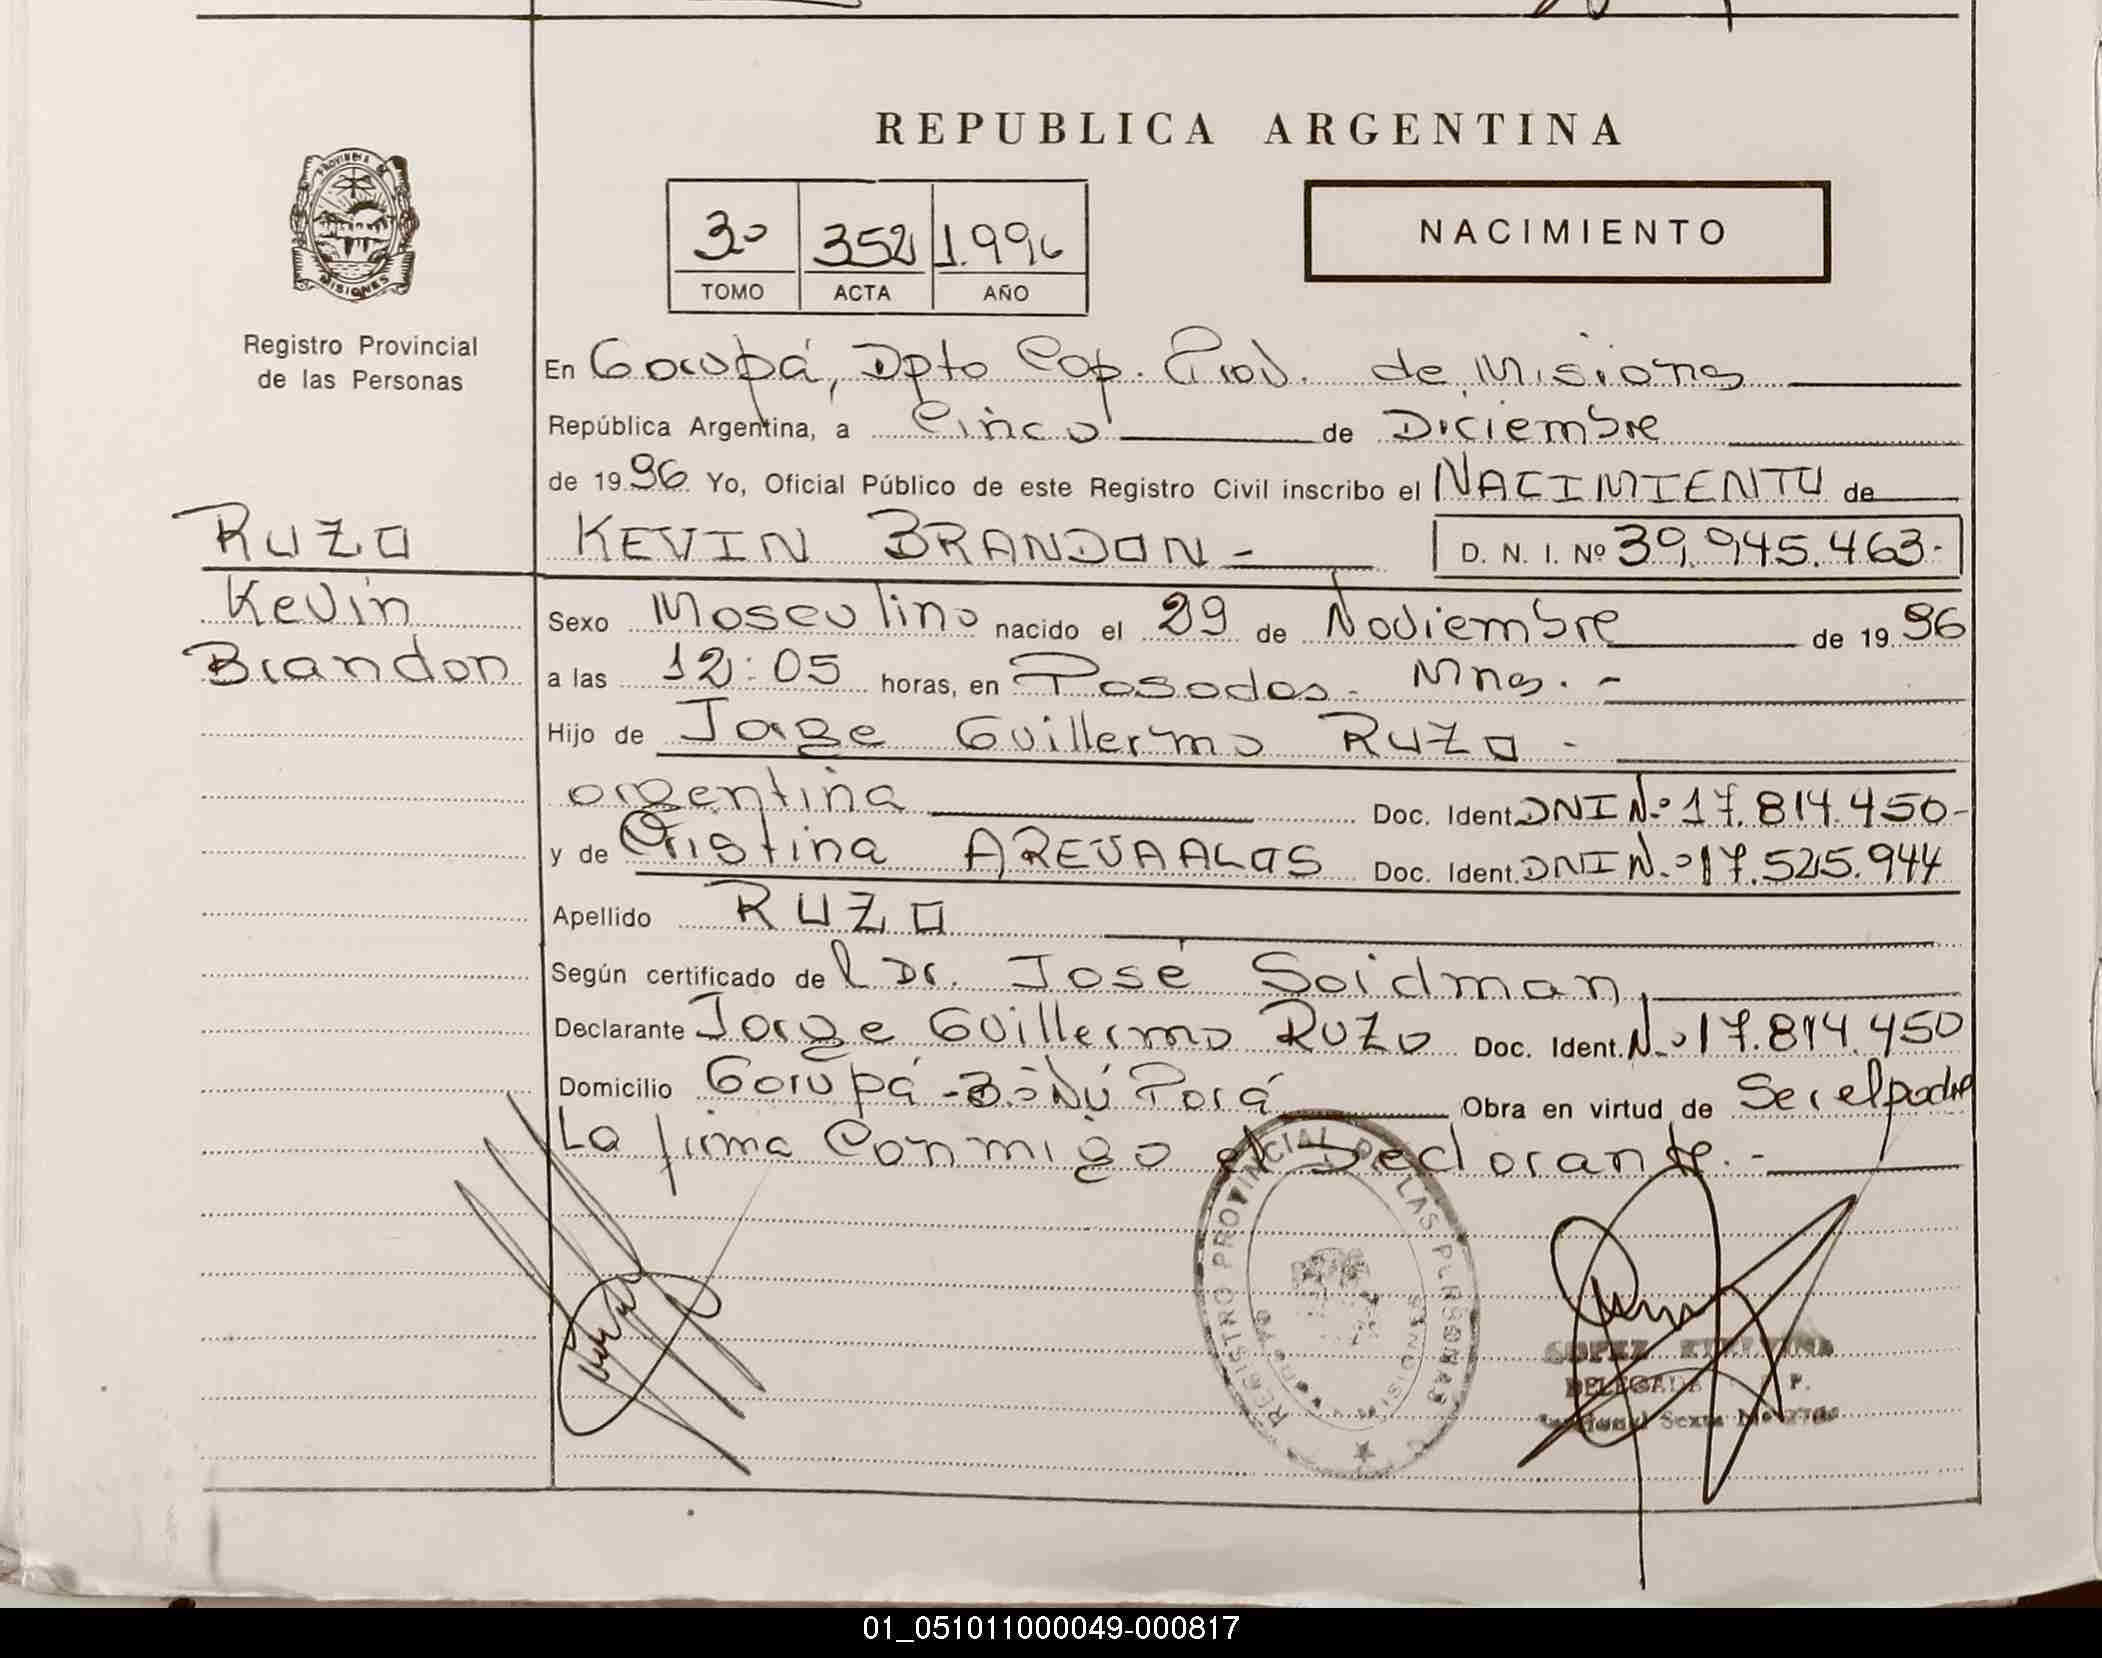 REPUBLICA ARGENTINA
PROVINCIA DE
MISIONES
Registro Provincial
de las Personas
3º 352 1.996
TOMO ACTA AÑO
NACIMIENTO
En Garupá, Dpto Cap. Prov. de Misiones
República Argentina, a Cinco de Diciembre
de 1996 Yo, Oficial Público de este Registro Civil inscribo el NACIMIENTO de
RUZO
KEVIN BRANDON - D. N. I. Nº 39.945.463.-
Kevin
Brandon
Sexo Masculino nacido el 29 de Noviembre de 1996
a las 12:05 horas, en Posadas - Mnes. -
Hijo de Jorge Guillermo RUZO -
argentina Doc. Ident. DNI N.º 17.814.450-
y de Cristina AREVAALOS Doc. Ident. DNI N.º 17.525.944
Apellido RUZO
Según certificado del Dr. José Saidman,
Declarante Jorge Guillermo RUZO Doc. Ident. N.º 17.814.450
Domicilio Garupá - Bº Ñú Porá Obra en virtud de Ser el padre
La firma Conmigo el Declarante. -
REGISTRO PROVINCIAL DE LAS PERSONAS
LOPEZ
DELEGADA P.
Sexta
01_051011000049-000817